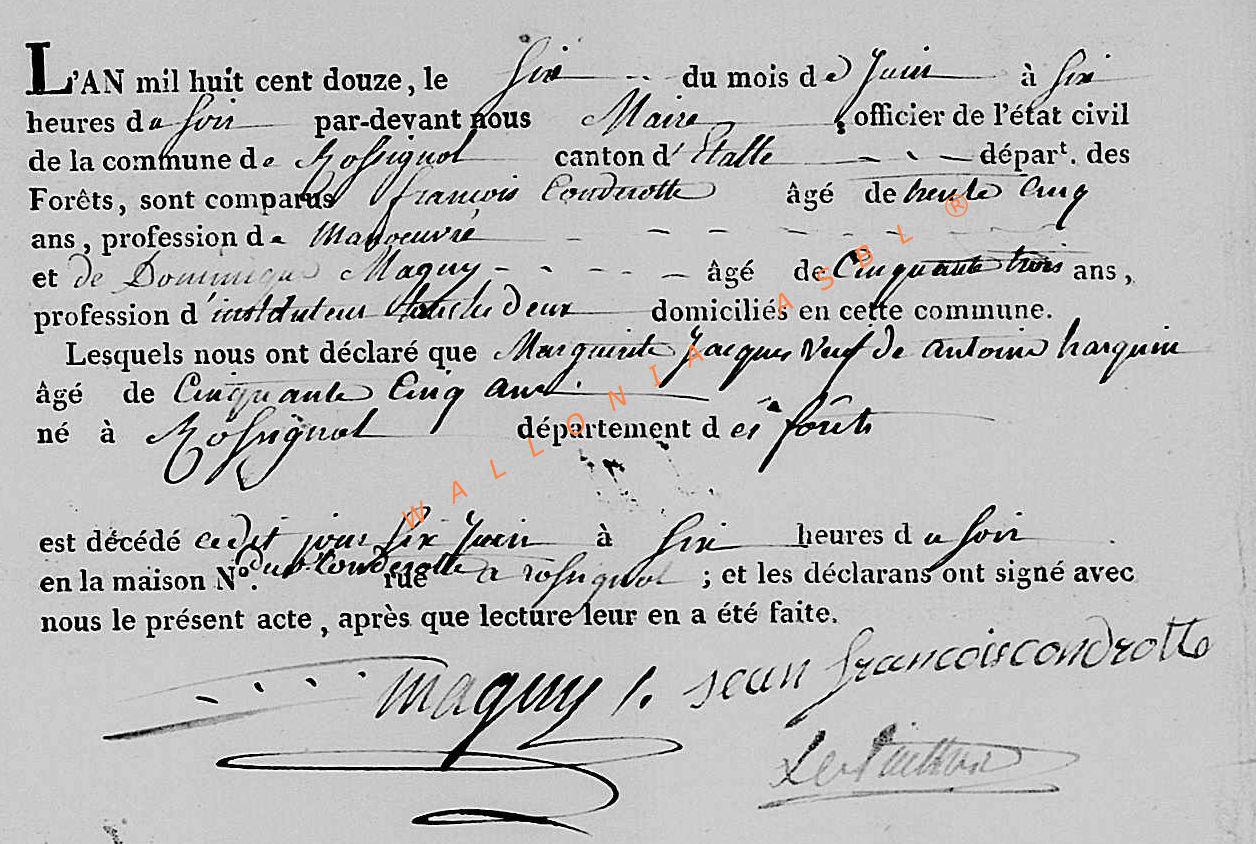 L'AN mil huit cent douze, le Six du mois de Juin à Six
heures du Soir par-devant nous Maire, officier de l'état civil
de la commune de Rossignol canton d'Etalle départ. des
Forêts, sont comparus françois Condrotte âgé de trente Cinq
ans, profession de Manoeuvre
et de Dominique Maguy âgé de Cinquante trois ans,
profession d'instituteur tous les deux domiciliés en cette commune.
Lesquels nous ont déclaré que Marguerite Jacques Veuf de antoine harquin
âgé de Cinquante Cinq ans
né à Rossignol département des forêts
est décédé cedit jour Six Juin à Six heures du Soir
en la maison No. dudt Conderotte rue a rossignol ; et les déclarans ont signé avec
nous le présent acte, après que lecture leur en a été faite.
maguy jean francois condrotte
WALLONIA ASBL ®